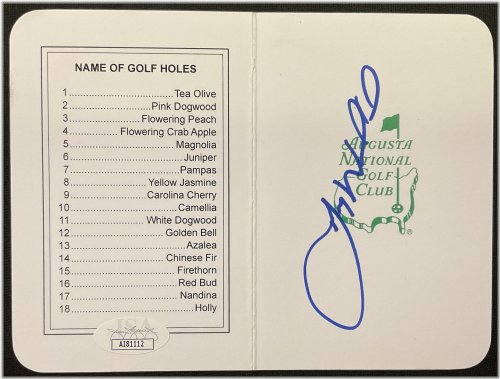 NAME OF GOLF HOLES
1 ........ Tea Olive
2 ........ Pink Dogwood
3 ........ Flowering Peach
4 ........ Flowering Crab Apple
5 ........ Magnolia
6 ........ Juniper
7 ........ Pampas
8 ........ Yellow Jasmine
9 ........ Carolina Cherry
10 ........ Camellia
11 ........ White Dogwood
12 ........ Golden Bell
13 ........ Azalea
14 ........ Chinese Fir
15 ........ Firethorn
16 ........ Red Bud
17 ........ Nandina
18 ........ Holly
JSA
AI81112
AUGUSTA
NATIONAL
GOLF
CLUB
®